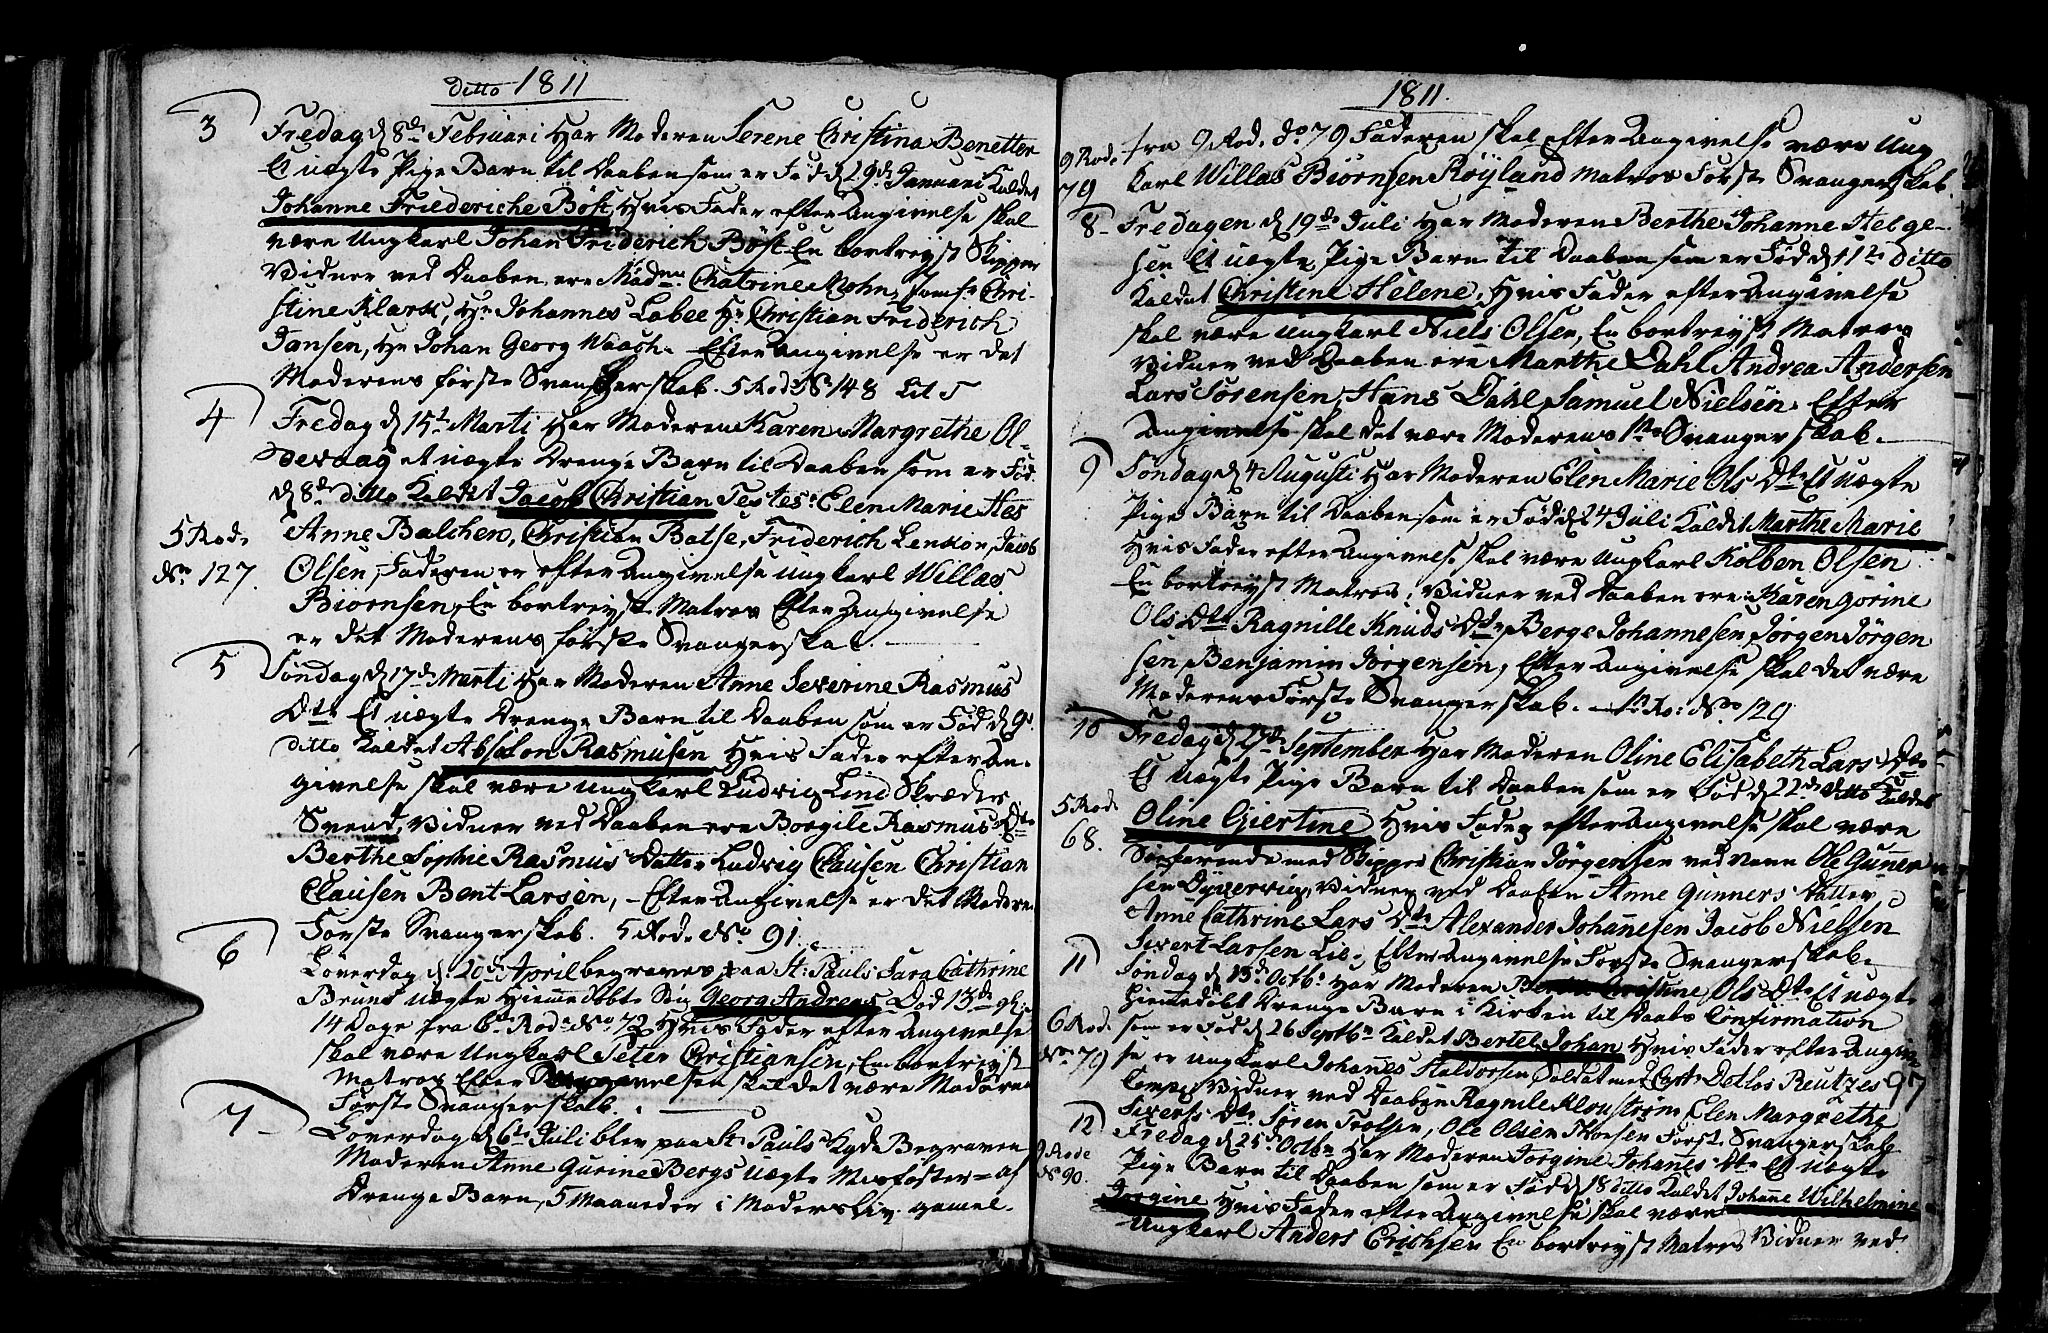 ditto 1811
3 Fredag d 8de Februari har Moderen Serene Christina Benetter
Et uægte Pige Barn til Daaben som er Fød d 29de Januari Kaldet
Johanne Friederiche Böst, Hvis Fader efter Angivelse skal
være Ungkarl Johan Friderich Böst En bortreyst Skipper
Vidner ved Daaben ere Mad. Chatrine Mohn, Jomfr Chri-
stine Klark, Hr Johannes Labee Hr Christian Friderich
Jansen, Hr Johan Georg Waach. Efter Angivelse er det
Moderens første Svangerskab. 5 Rode No 148 Lit T
4 Fredag d 15de Marti har Moderen Karen Margrethe Ol-
dervaag et uægte Drenge Barn til Daaben som er Fød
d 8de ditto Kaldet Jacob Christian Testes: Elen Marie Hes
Anne Balchen, Christian Batse, Friderich Lenkon, Jacob
5 Rode No 127.
Olsen, Faderen er efter Angivelse Ungkarl Willas
Biörnsen, En bortreyst Matros Efter Angivelse
er det Moderens første Svangerskab.
5 Söndag d 17de Marti har Moderen Anne Severine Rasmus
Dtr Et uægte Drenge Barn til Daaben som er Fød d 9de
ditto Kaldet Absalon Rasmusen Hvis Fader efter An-
givelse skal være Ungkarl Ludvig Lind Skræder
Svend, Vidner ved Daaben ere Borgile Rasmus Dtr
Berthe Sophie Rasmus Datter Ludvig Clausen Christian
Clausen Bent Larsen, Efter Angivelse er det Modere
Første Svangerskab. 5 Rode No 91.
6 Löverdag d 20de April begraves paa St: Pauls Sara Cathrine
Bruns uægte Hiemedöbte Sön Georg Andreas Död 13de
14 Dage fra 6te Rode No 72 Hvis Fader efter Angivelse
skal være Ungkarl Peter Christiansen, En bortreyst
Matros Efter skal det være Moderens
Første Svangerskab.
7 Loverdag d 6te Juli blev paa St Pauls Begraven
Moderen Anne Gurine Bergs uægte Misfoster af
Drenge Barn, 5 Maaneder i Modersliv gamel.
1811.
9 Rode 79
fra 9 Rode do 79 Faderen skal efter Angivelse være Ung
Karl Willas Biörnsen Röyland Matros Første Svangerskab.
8 Fredagen d 19de Juli har Moderen Berthe Johanne Helge-
sen Et uægte Pige Barn til Daaben som er Fød d 11te ditto
Kaldet Christine Helene, Hvis Fader efter Angivelse
skal være Ungkarl Niels Olsen, En bortreyst Matros
Vidner ved Daaben ere Marthe Dahl Andrea Andersen
Lars Sörensen, Hans Dahl Samuel Nielsen. Efter
Angivelse skal det være Moderens 1te Svangerskab.
9 Söndag d 4 Augusti har Moderen Elen Marie Ols Dtr Et uægte
Pige Barn til Daaben som er Fød d 24 Juli Kaldet Marthe Marie
Hvis Fader efter Angivelse skal være Ungkarl Kolben Olsen
En bortreyst Matros, Vidner ved Daaben ere Karen Gorine
Ols Dtr Ragnille Knuds Dtr, Berge Johannesen, Jörgen Jörgen
sen, Benjamin Jörgensen, Efter Angivelse skal det være
Moderens Første Svangerskab. Ro: No 129
10 Fredag d 27de September har Moderen Oline Elisabeth Lars Dtr
Et uægte Pige Barn til Daaben som er Fød d 22de ditto Kaldet
5 Rode 68.
Oline Giertine Hvis Fader efter Angivelse skal være
Söefarende med Skipper Christian Jörgensen ved Navn Ole Guner
sen Dyvervig, Vidner ved Daaben Anne Gunners Datter
Anne Cathrine Lars Dtr Alexander Johanesen Jacob Nielsen
Sivert Larsen Lie, Efter Angivelse Første Svangerskab.
11 Söndag d 13de Octbr har Moderen Berthe Christine Ols Dtr Et uægte
Hiemedöbt Drenge Barn i Kirken til Daabs Confirmation
6 Rode No 79
som er Fød d 26 Septbr Kaldet Bertel Johan Hvis Fader efter Angivel
se er Ungkarl Johanes Haldorsen Soldat med Capt: Detlos Reutzes 97
Compe, Vidner ved Daaben Ragnile Kloustrøm, Elen Margrethe
Siverts Dtr Sören Trolsen, Ole Olsen Thorsen Første Svangerskab
12 Fredag d 25de Octbr har Moderen Jorgine Johanes Dtr Et uægte
9 Rode No 90.
Pige Barn til Daaben som er Fød d 18 ditto Kaldet Johane Wilhelmine
Jorgine Hvis Fader efter Angivelse skal være
Ungkarl Anders Erichsen En bortreyst Matros Vidner ved